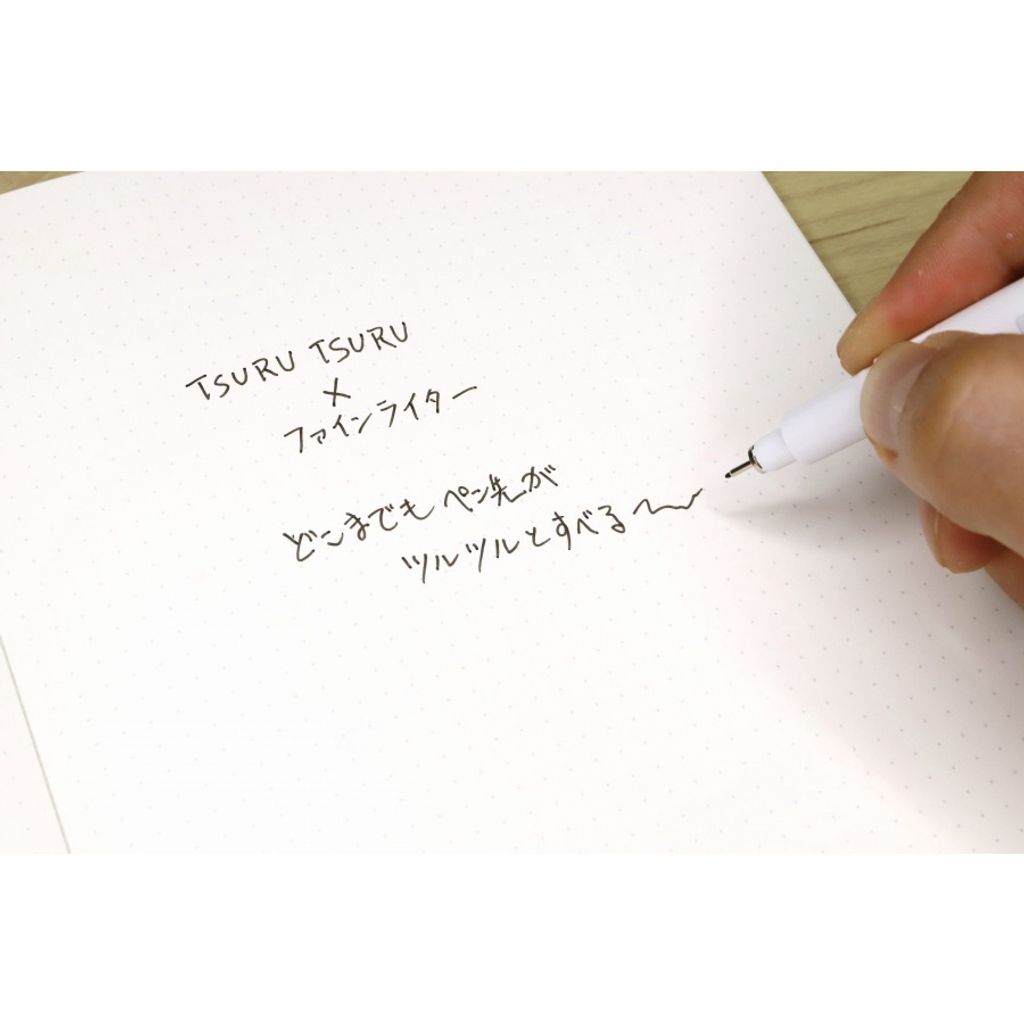 TSURU TSURU
×
ファインライター
どこまでもペン先が
ツルツルとすべる〜